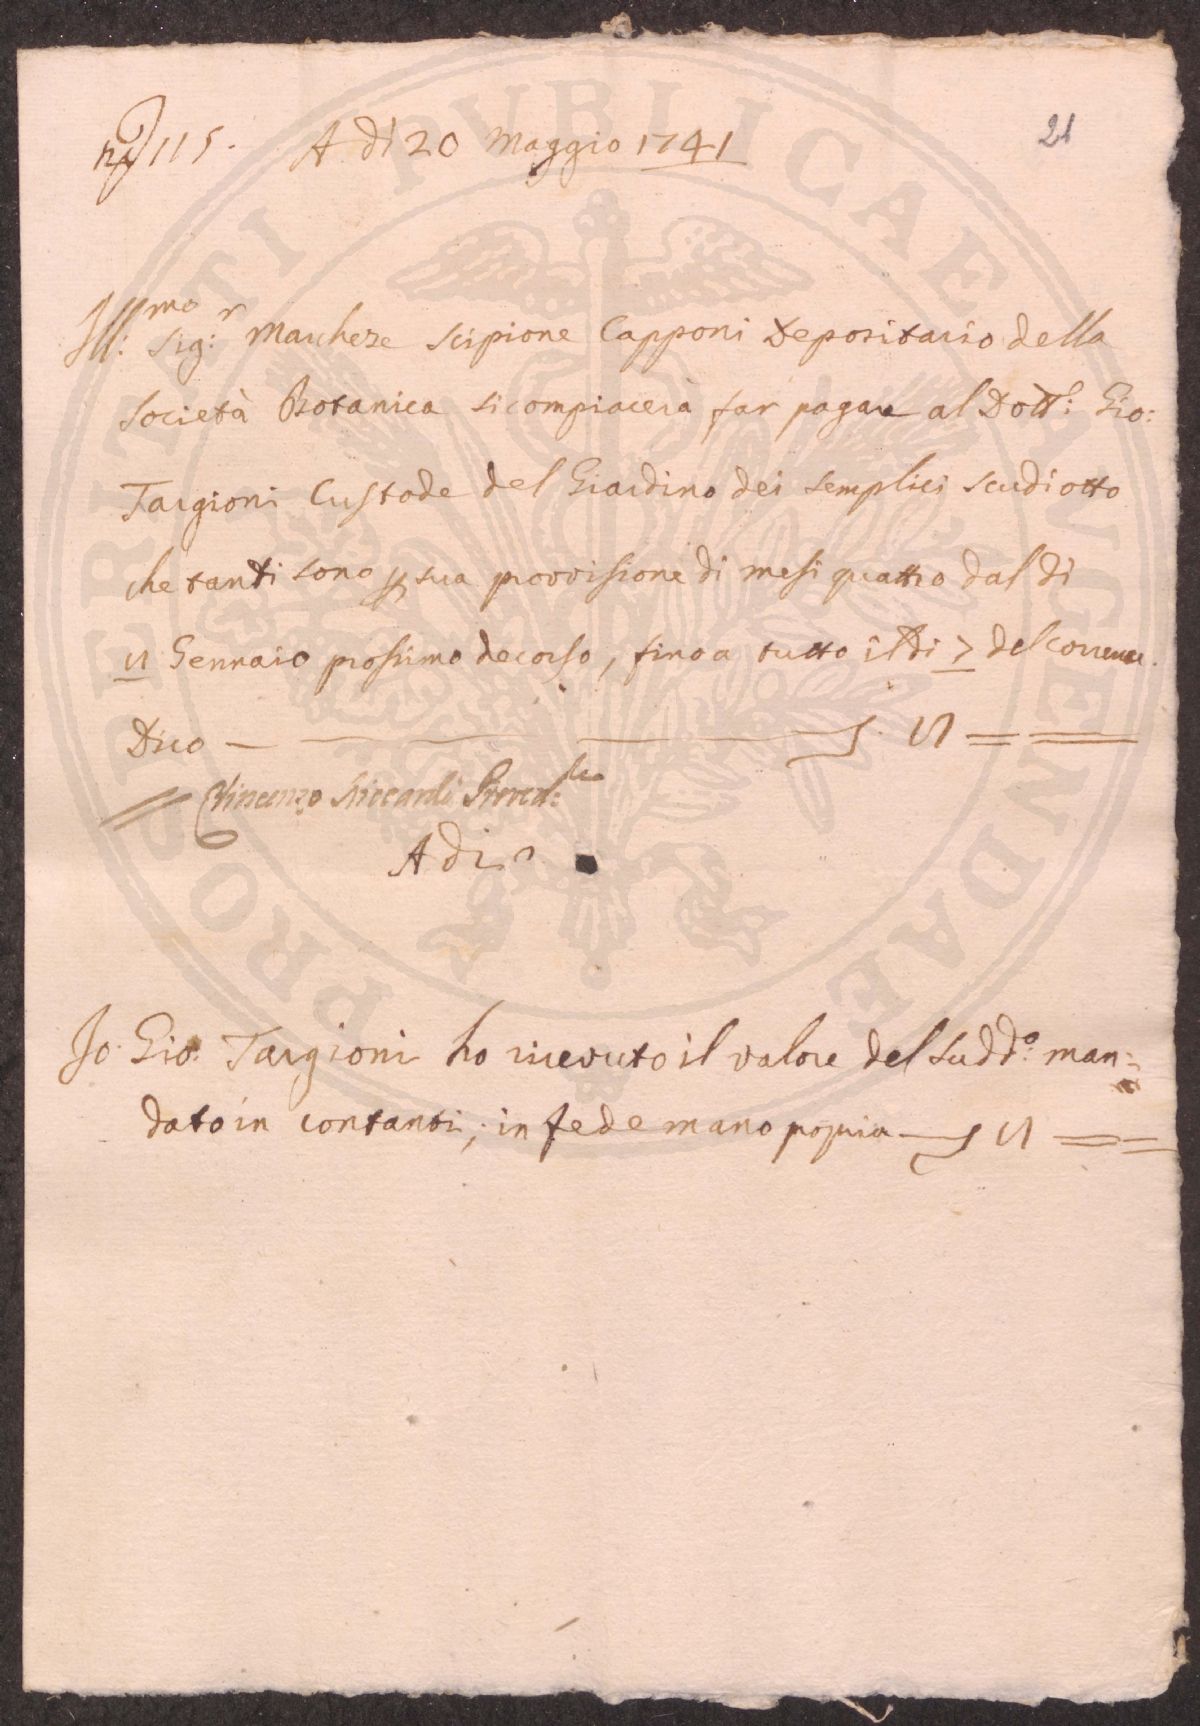 n.º 115. A dì 20 Maggio 1741
21
Ill:mo Sig:r Marchese Scipione Capponi Depositario della
Società Botanica si compiacerà far pagare al Dott:e Gio:
Targioni Custode del Giardino dei Semplici scudi otto
che tanti sono p sua provvisione di mesi quattro dal dì
8 Gennaio prossimo decorso, fino a tutto il dì 7 del corrente.
Dico — — — — — 8 = =
Vincenzo Riccardi
A dì
Io Gio: Targioni ho ricevuto il valore del sudd:o man=
dato in contanti, in fede mano propria — 8 = =
PROSPERITATI PVBLICAE AVGENDAE